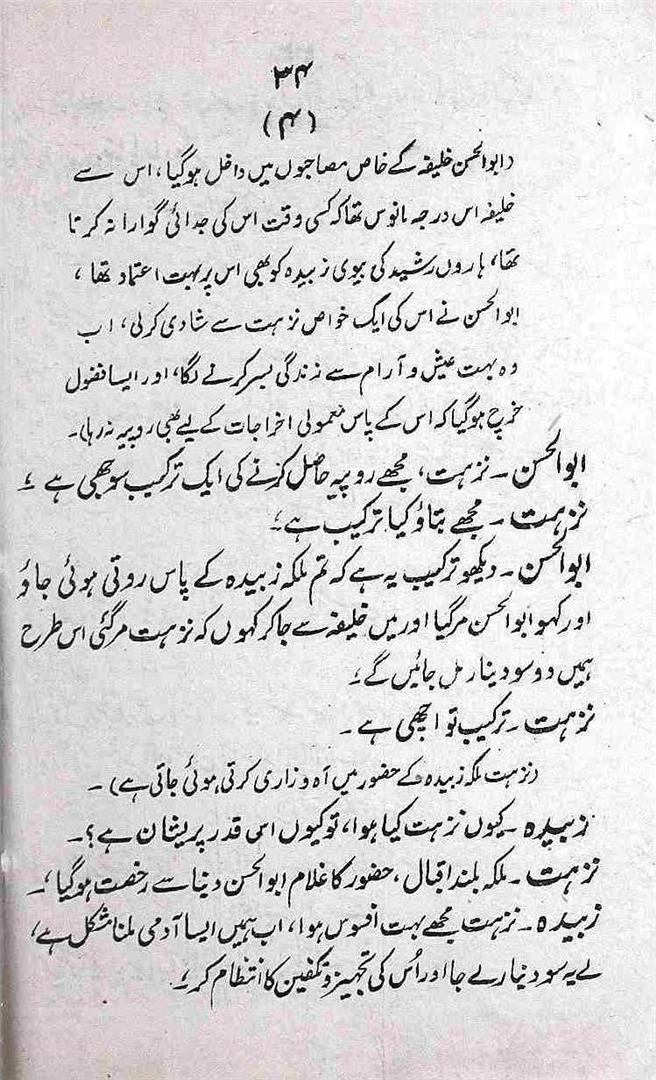 ۳۴
(۴)
(ابوالحسن خلیفہ کے خاص مصاحبوں میں داخل ہوگیا، اس سے
خلیفہ اس درجہ مانوس تھا کہ کسی وقت اس کی جدائی گوارا نہ کرتا
تھا، ہارون رشید کی بیوی زبیدہ کو بھی اس پر بہت اعتماد تھا،
ابوالحسن نے اس کی ایک خواص نزہت سے شادی کرلی، اب
وہ بہت عیش و آرام سے زندگی بسر کرنے لگا، اور ایسا فضول
خرچ ہوگیا کہ اس کے پاس معمولی اخراجات کے لیے بھی روپیہ نہ رہا)۔
ابوالحسن ۔ نزہت، مجھے روپیہ حاصل کرنے کی ایک ترکیب سوجھی ہے ؛
نزہت ۔ مجھے بتاؤ کیا ترکیب ہے ؛
ابوالحسن ۔ دیکھو ترکیب یہ ہے کہ تم ملکہ زبیدہ کے پاس روتی ہوئی جاؤ
اور کہو ابوالحسن مرگیا اور میں خلیفہ سے جاکر کہوں کہ نزہت مرگئی اس طرح
ہمیں دو سو دینار مل جائیں گے ؛
نزہت ۔ ترکیب تو اچھی ہے ۔
(نزہت ملکہ زبیدہ کے حضور میں آہ و زاری کرتی ہوئی جاتی ہے) ۔
زبیدہ ۔ کیوں نزہت کیا ہوا، تو کیوں اس قدر پریشان ہے؟۔
نزہت ۔ ملکہ بلند اقبال، حضور کا غلام ابوالحسن دنیا سے رخصت ہوگیا ؛۔
زبیدہ ۔ نزہت مجھے بہت افسوس ہوا، اب ہمیں ایسا آدمی ملنا مشکل ہے،
لے یہ سو دینار لے جا اور اُس کی تجہیز و تکفین کا انتظام کر ؛